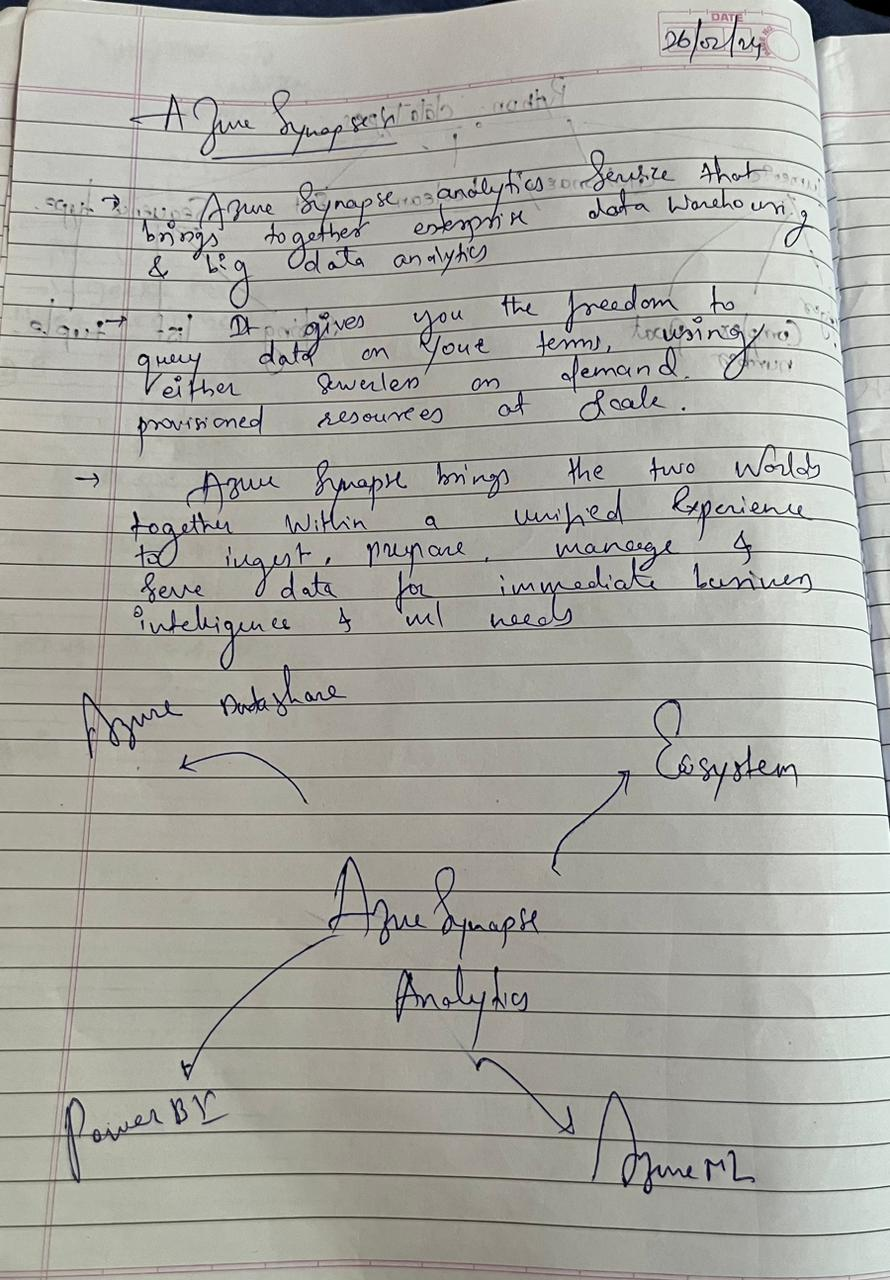 DATE
26/02/24
Azure Synapse
→ Azure Synapse analytics Service that
brings together enterprise data Warehousing
& big data analytics
→ It gives you the freedom to
query data on your terms, using
either serverless on demand.
provisioned resources at Scale.
→ Azure Synapse brings the two Worlds
together Within a unified Experience
to ingest, prepare, manage &
Serve data for immediate business
intelligence & ml needs
Azure Datashare
Ecosystem
Azure Synapse
Analytics
Power BI
Azure ML